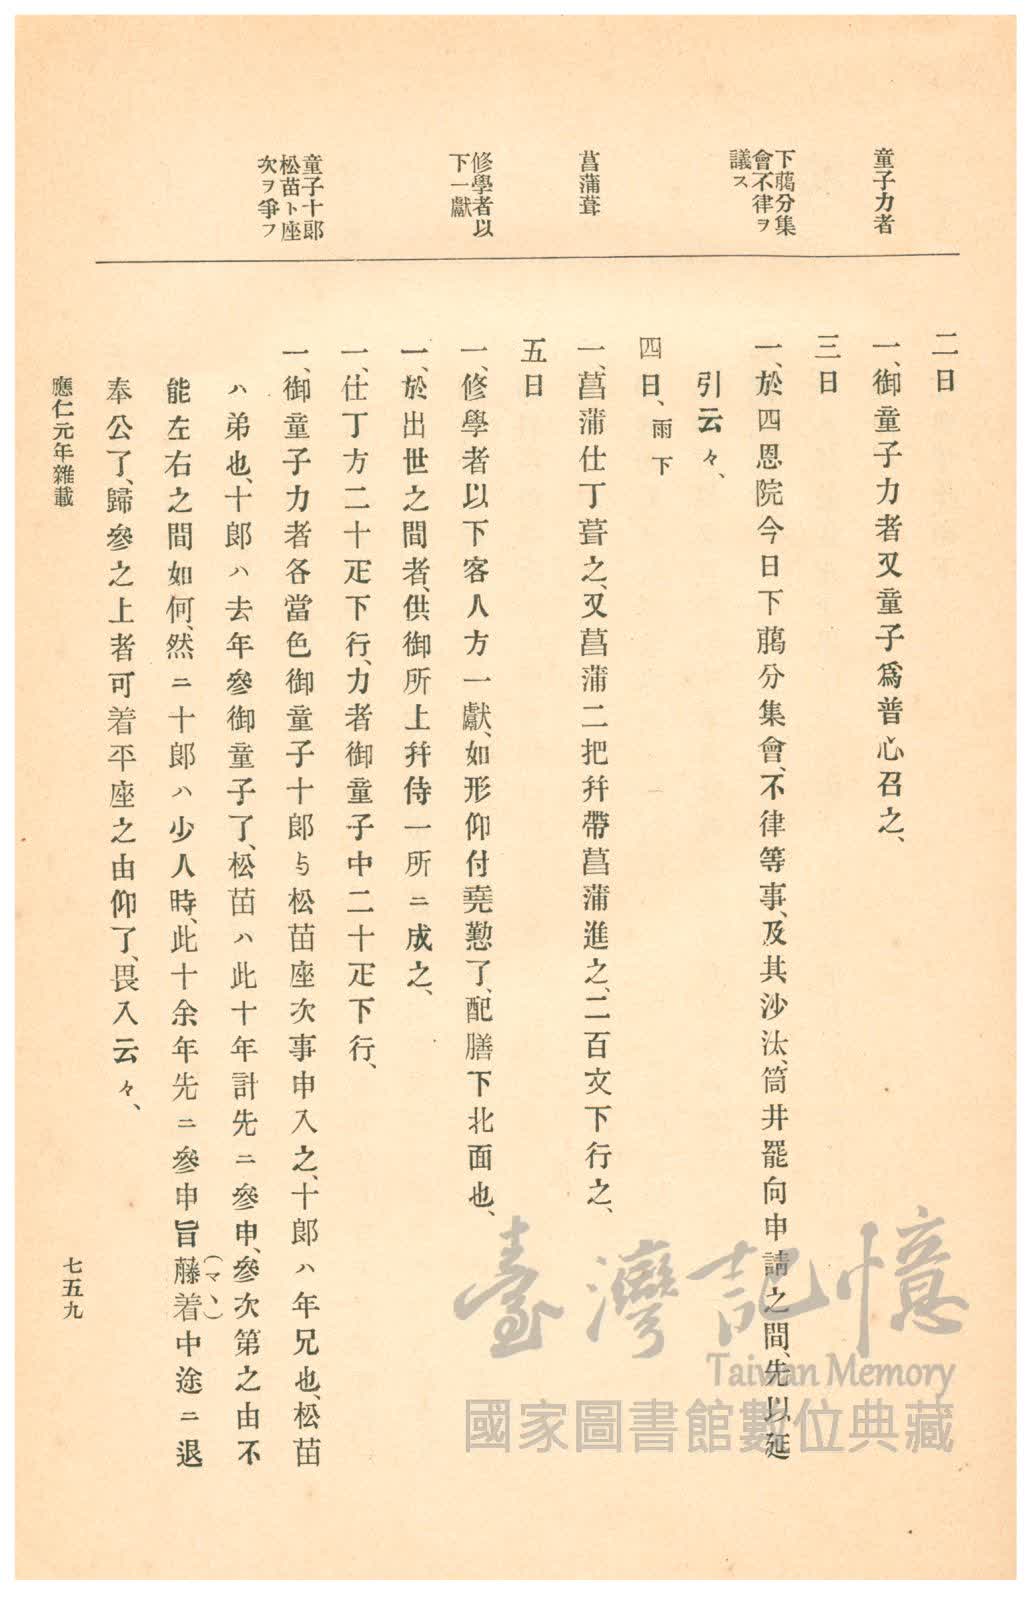 童子力者
下﨟分集
會不律ヲ
議ス
菖蒲葺
修學者以
下一獻
童子十郞
松苗ト座
次ヲ爭フ
二日
一、御童子力者又童子爲普心召之、
三日
一、於四恩院今日下﨟分集會、不律等事、及其沙汰、筒井罷向申請之間、先以延
引云々、
四日、雨下
一、菖蒲仕丁葺之、又菖蒲二把幷帶菖蒲進之、二百文下行之、
五日
一、修學者以下客人方一獻、如形仰付堯懃了、配膳下北面也、
一、於出世之間者、供御所上幷侍一所ニ成之、
一、仕丁方二十疋下行、力者御童子中二十疋下行、
一、御童子力者各當色御童子十郞与松苗座次事申入之、十郞ハ年兄也、松苗
ハ弟也、十郞ハ去年參御童子了、松苗ハ此十年計先ニ參申、參次第之由不
能左右之間如何、然ニ十郞ハ少人時、此十余年先ニ參申旨藤着(マヽ)中途ニ退
奉公了、歸參之上者可着平座之由仰了、畏入云々、
應仁元年雜載
七五九
臺灣記憶
Taiwan Memory
國家圖書館數位典藏